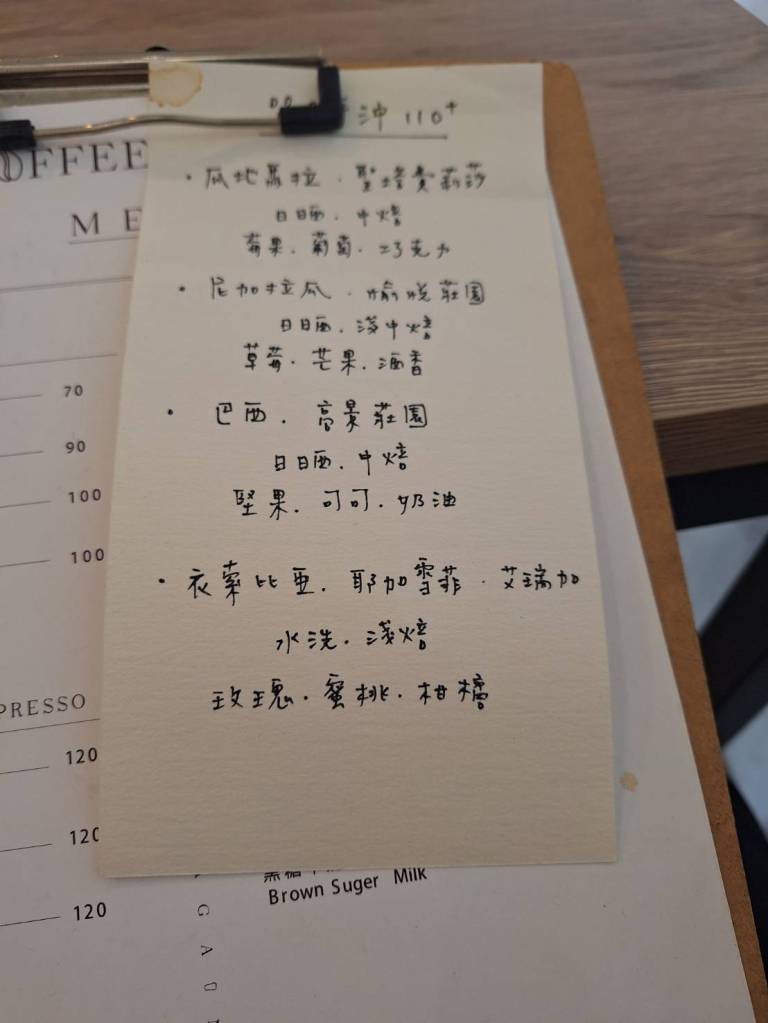 沖 110+
OFFEE
M E
・瓜地馬拉．聖塔費莉莎
日日曬．中焙
莓果．葡萄．巧克力
・尼加拉瓜．愉悅莊園
日日晒．淺中焙
草莓．芒果．酒香
・巴西．高景莊園
日日晒．中焙
堅果．可可．奶油
・衣索比亞．耶加雪菲．艾瑞加
水洗．淺焙
玫瑰．蜜桃．柑橘
70
90
100
100
PRESSO
120
120
120
黑糖
Brown Suger Milk
G A D